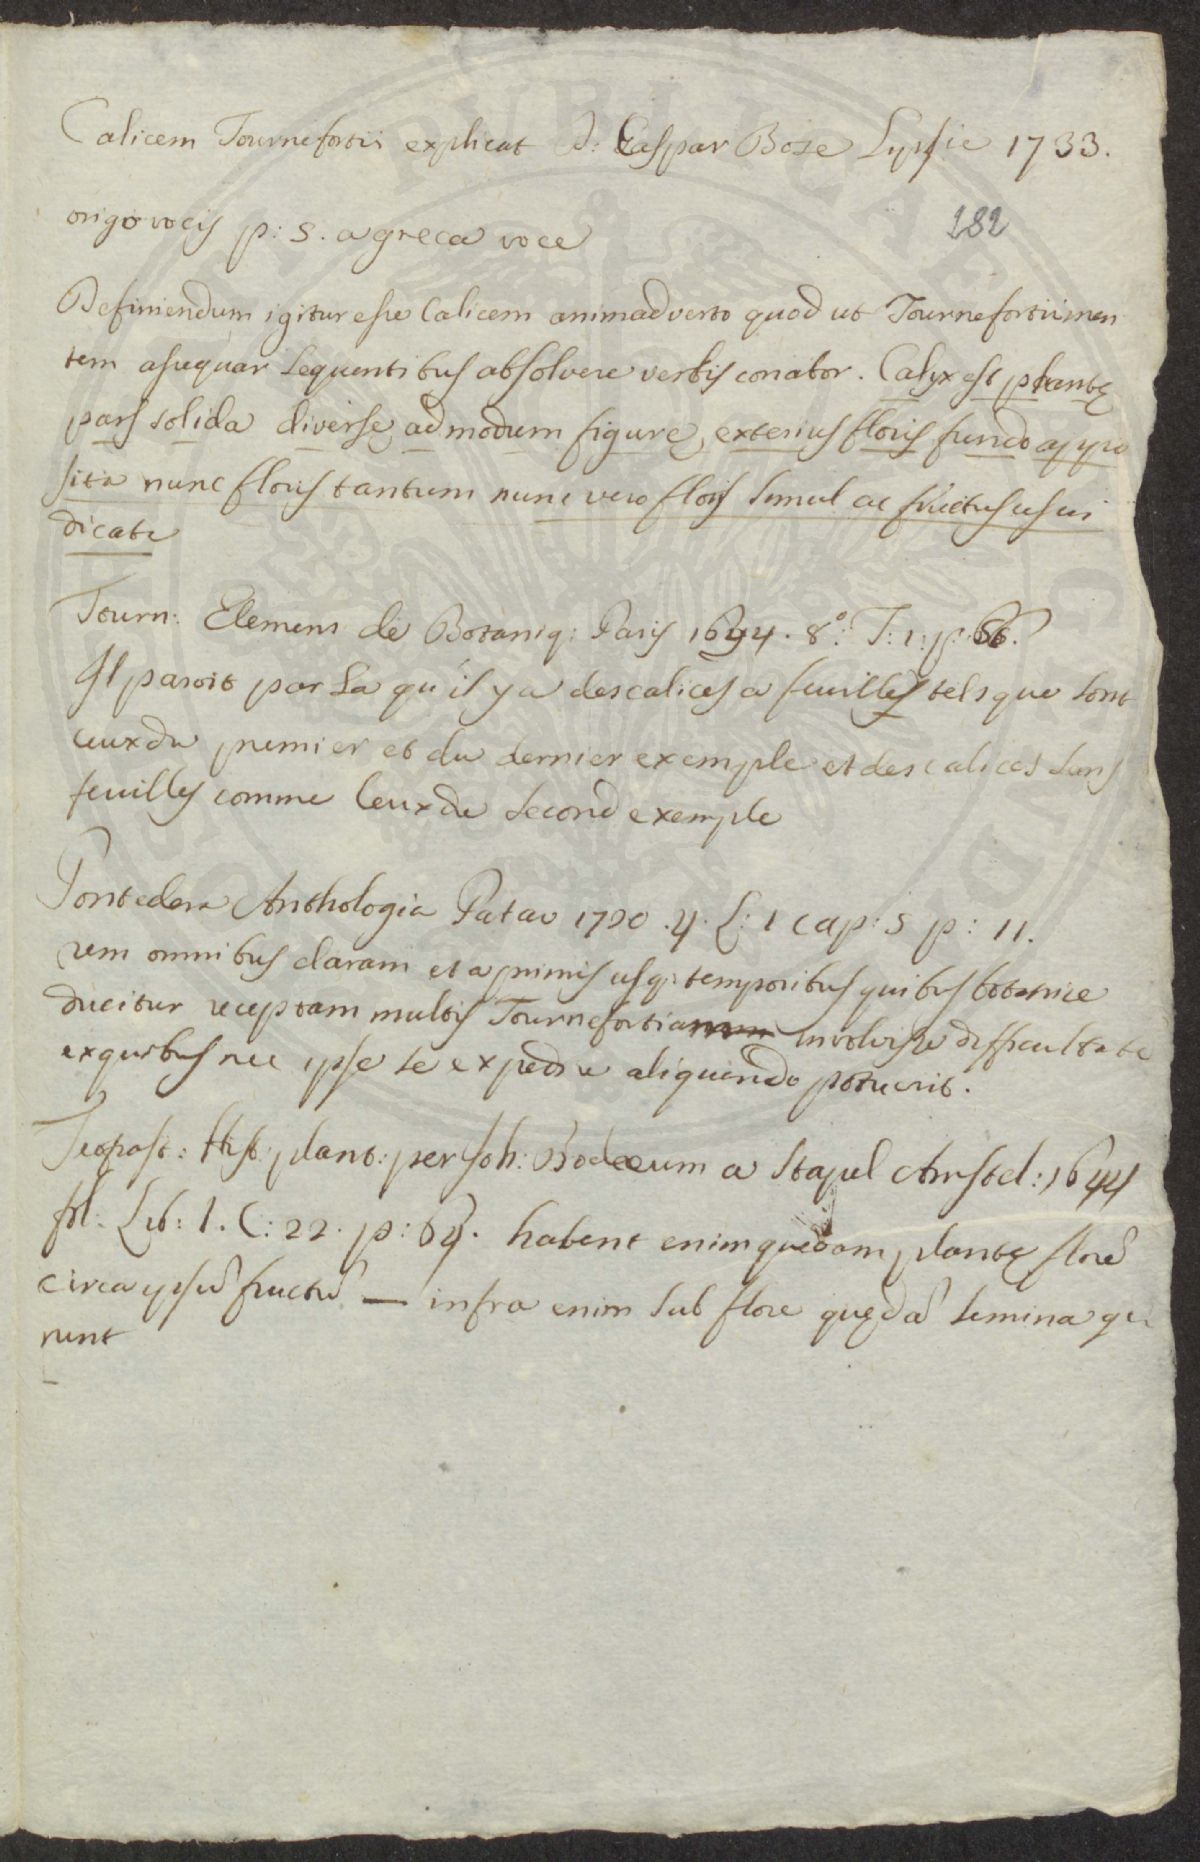 Calicem Tournefortii explicat D: Caspar Bose Lypsie 1733.
origo vocis p: 5. a greca voce
282
Definiendum igitur esse Calicem animadverto quod ut Tournefortii men
tem assequar sequentibus absolvere verbis conabor. Calyx est plantę
pars solida diversę admodum figurę, exterius floris fundo appo
sita nunc floris tantum nunc vero floris simul ac fructus usui
dicata
Tourn: Elemens de Botaniq: Paris 1694. 8º: T: 1: p: 66.
Il paroit par La qu'il y a des calices a feuilles tels que sont
ceux du premier et du dernier exemple et des calices sans
feuilles comme Ceux du second exemple
Pontedera Anthologia Patav 1720. 4. L: 1 cap: 5 p: 11.
rem omnibus claram et a primis usq: temporibus quibus botanice
ducitur receptam multis Tournefortia involvisse difficultate
ex quibus nec ipse se expedire aliquando potuerit.
Teofrast: Hist: plant: per Joh: Bodeum a Stapel Amstel: 1644
fol: Lib: 1. C: 22. p: 64. habent enim quedam plantę florē
circa ipsū fructū — infra enim sub flore quędā semina ge
runt